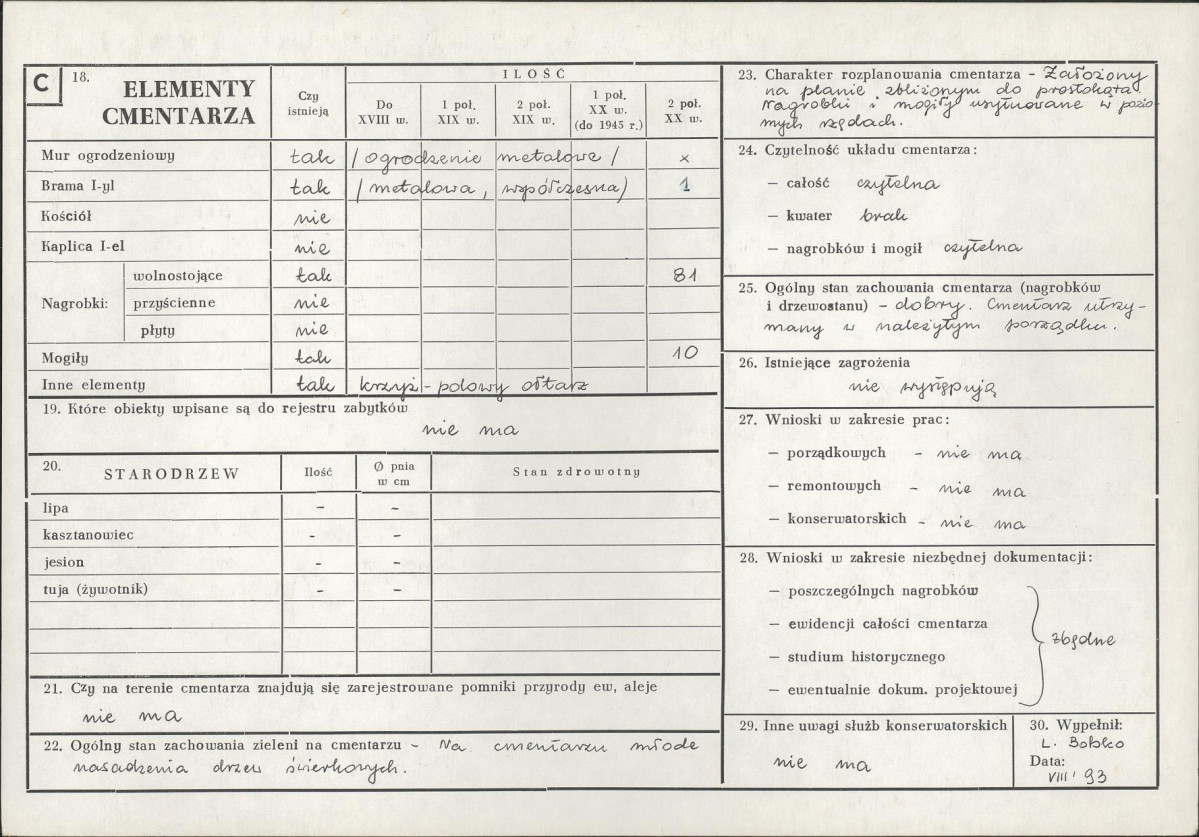 C 18. ELEMENTY CMENTARZA
Czy istnieją
ILOŚĆ
Do XVIII w.
1 poł. XIX w.
2 poł. XIX w.
1 poł. XX w. (do 1945 r.)
2 poł. XX w.
Mur ogrodzeniowy tak /ogrodzenie metalowe/ x
Brama I-yl tak /metalowa, współczesna) 1
Kościół nie
Kaplica I-el nie
Nagrobki:
wolnostojące tak 81
przyścienne nie
płyty nie
Mogiły tak 10
Inne elementy tak krzyż - polowy ołtarz
19. Które obiekty wpisane są do rejestru zabytków
nie ma
20. STARODRZEW Ilość Ø pnia w cm Stan zdrowotny
lipa - -
kasztanowiec - -
jesion - -
tuja (żywotnik) - -
21. Czy na terenie cmentarza znajdują się zarejestrowane pomniki przyrody ew, aleje
nie ma
22. Ogólny stan zachowania zieleni na cmentarzu - Na cmentarzu młode
nasadzenia drzew świerkowych.
23. Charakter rozplanowania cmentarza - Założony
na planie zbliżonym do prostokąta.
Nagrobki i mogiły usytuowane w pozio-
mych rzędach.
24. Czytelność układu cmentarza:
— całość czytelna
— kwater brak
— nagrobków i mogił czytelna
25. Ogólny stan zachowania cmentarza (nagrobków
i drzewostanu) - dobry. Cmentarz utrzy-
many w należytym porządku.
26. Istniejące zagrożenia
nie występują
27. Wnioski w zakresie prac:
— porządkowych - nie ma
— remontowych - nie ma
— konserwatorskich - nie ma
28. Wnioski w zakresie niezbędnej dokumentacji:
— poszczególnych nagrobków
— ewidencji całości cmentarza
zbędne
— studium historycznego
— ewentualnie dokum. projektowej
29. Inne uwagi służb konserwatorskich
nie ma
30. Wypełnił:
L. Bobko
Data:
VIII' 93